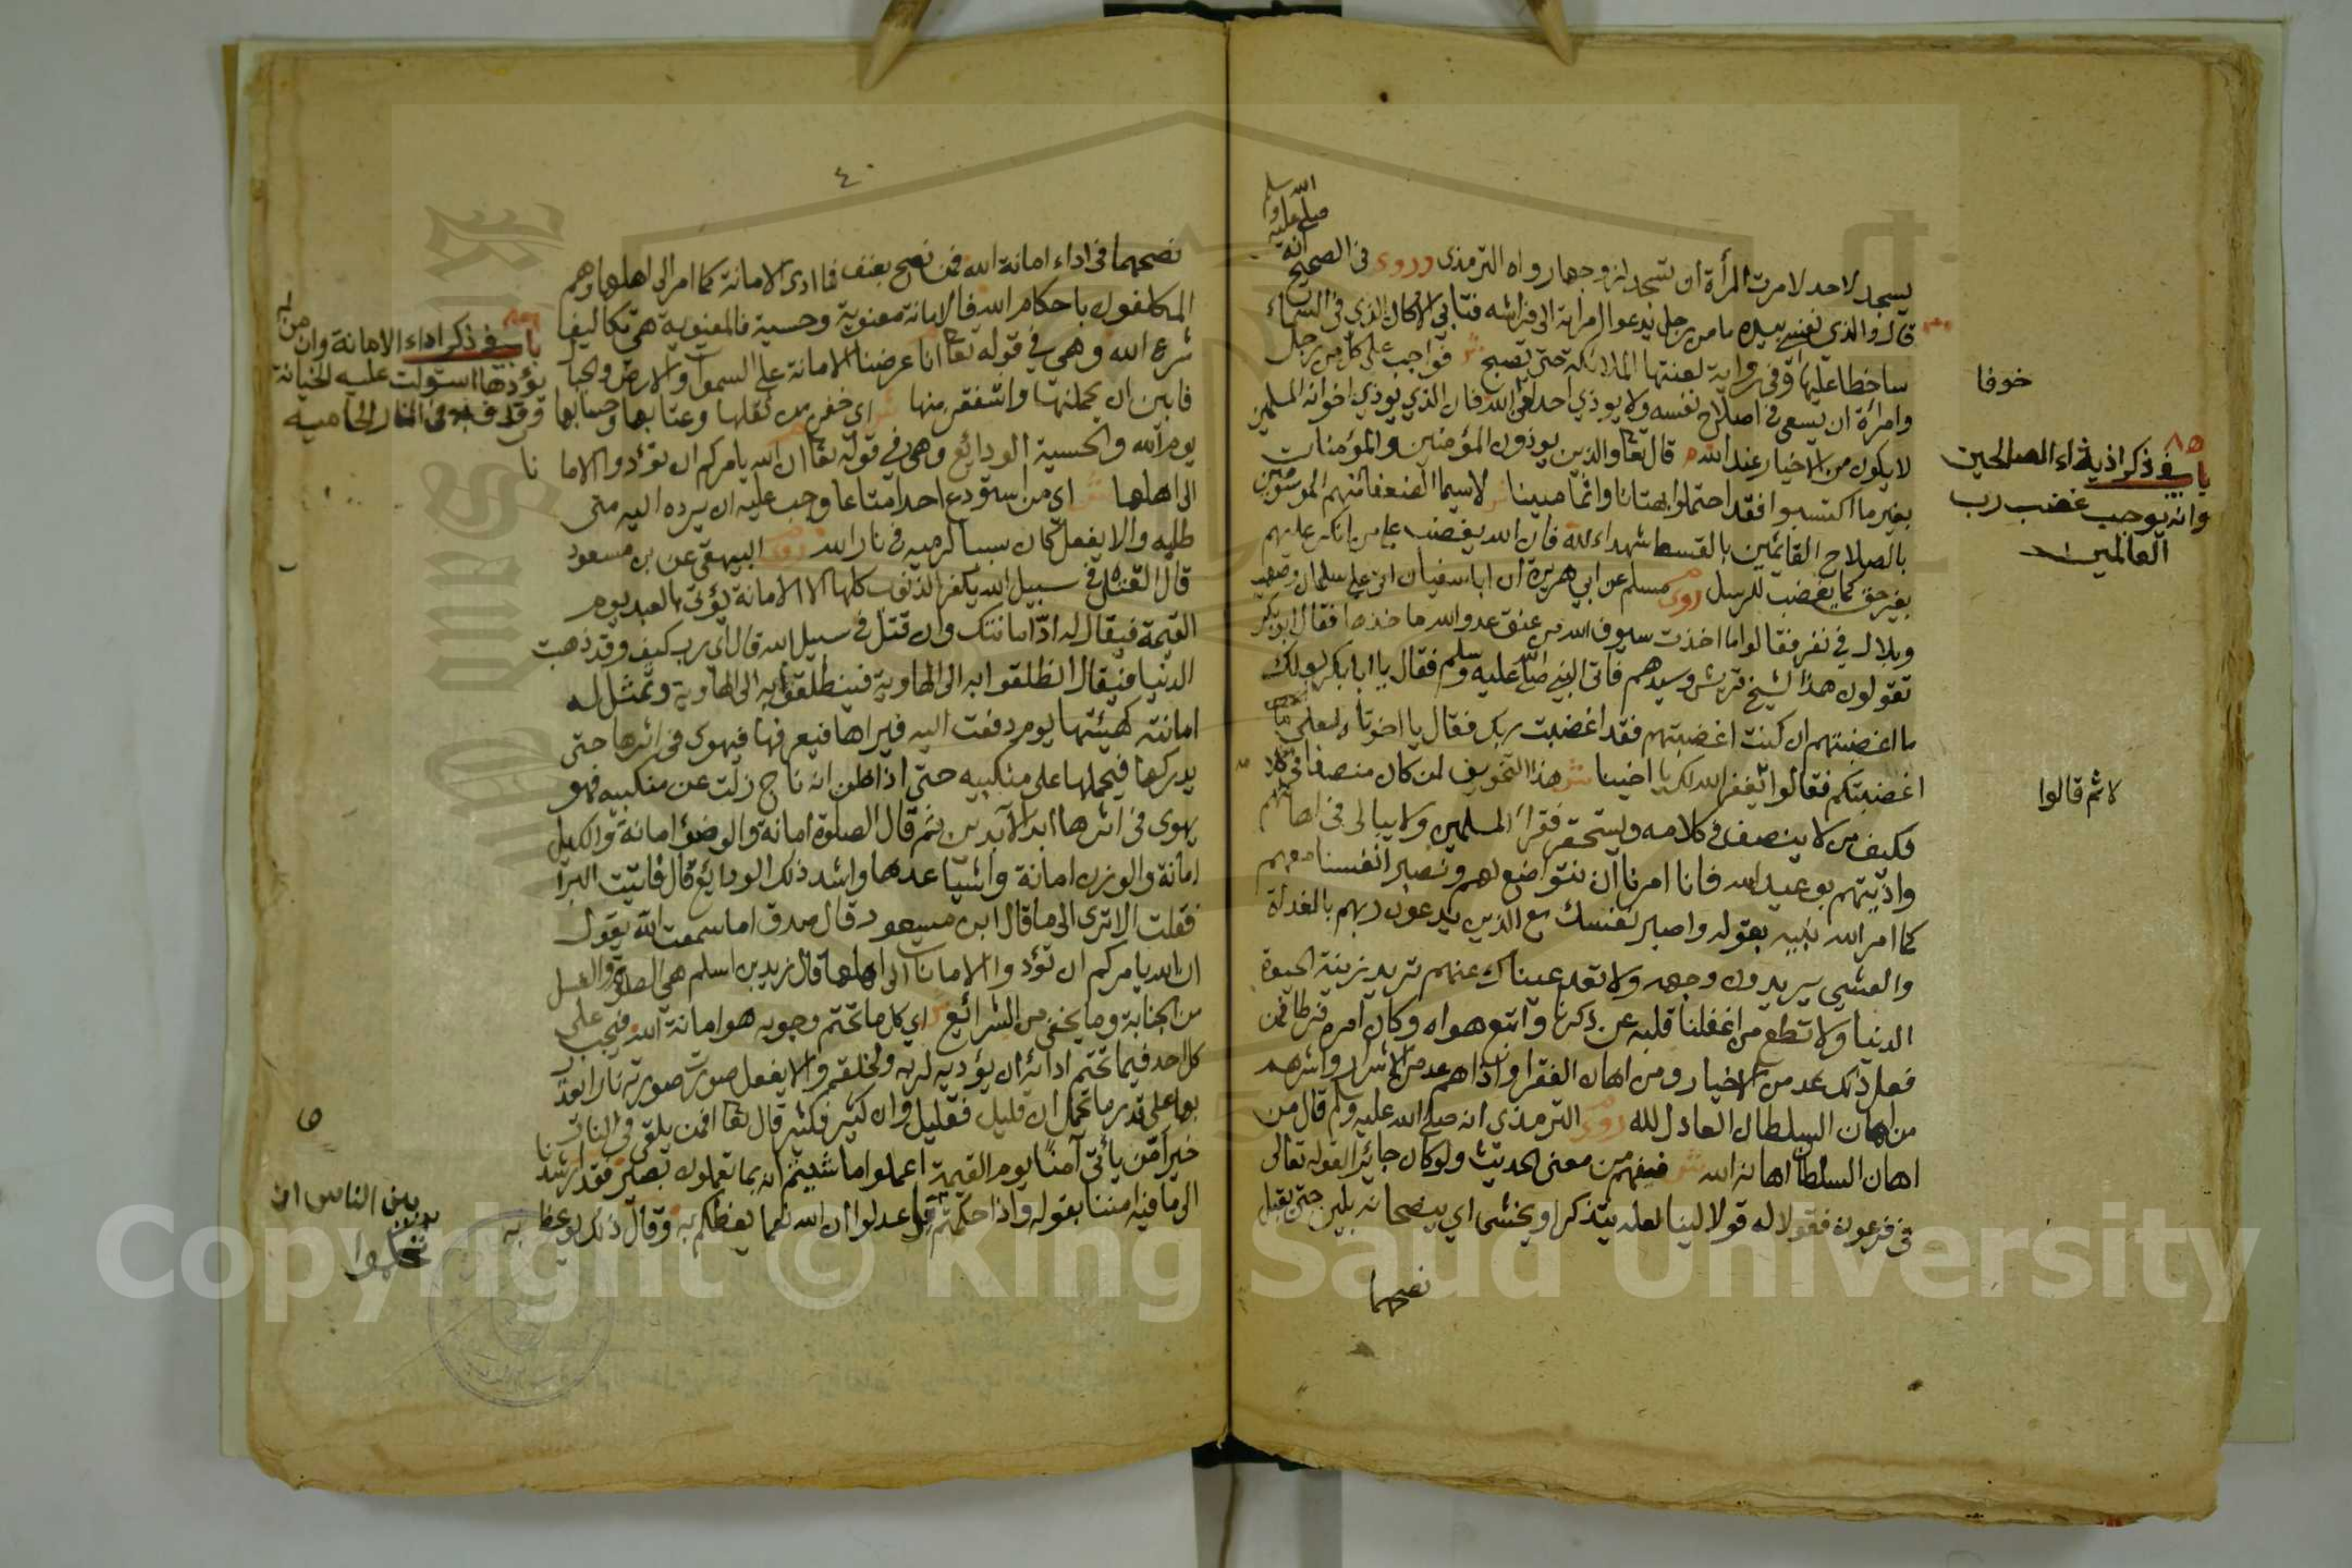 صلى الله عليه وسلم
انه
يسجد لاحد لامرت المرأة ان تسجد لزوجها رواه الترمذى وروى فى الصحيح
قال والذى نفسى بيده ما من رجل يدعوا امرأته الى فراشه فتابى الا كان الذى فى السماء
ساخطا عليها وفى رواية لعنتها الملائكة حتى تصبح ش فواجب على كل من رجل
وامرأة ان يسعى فى اصلاح نفسه ولا يوذي احد لله فان الذي يوذي اخوانه المسلمين
لا يكون من الاخيار عند الله قال تعا والذين يوذون المؤمنين والمؤمنات
بغير ما اكتسبوا فقد احتملوا بهتانا واثما مبينا ش لاسيما الضعفا منهم الموسومين
بالصلاح القايمين بالقسط شهداء لله فان الله يغضب على من انكر عليهم
بغير حق كما يغضب للرسل روى مسلم عن ابي هريرة ان ابا سفيان اتى على سلمان وصهيب
وبلال في نفر فقالوا ما اخذت سيوف الله من عنق عدو الله ما خذها فقال ابو بكر
تقولون هذا لشيخ قريش وسيدهم فاتى النبي صلى الله عليه وسلم فقال يا ابا بكر لعلك
ما اغضبتهم ان كنت اغضبتهم فقد اغضبت ربك فقال يا اخوتاه لعلى
اغضبتكم فقالوا يغفر الله لك يا اخينا ش هذا التخويف لمن كان منصفا فى كلا
فكيف من لا ينصف فى كلامه ويستحقر فقراء المسلمين ولا يبالى فى
واذيتهم يو عبيد الله فانا امرنا ان نتواضع لهم ونصبر انفسنا معهم
كما امر الله نبيه بقوله واصبر نفسك مع الذين يدعون ربهم بالغداة
والعشي يريدون وجهه ولا تعد عيناك عنهم تريد زينة الحيوة
الدنيا ولا تطع من اغفلنا قلبه عن ذكرنا واتبع هواه وكان امره فرطا فمن
فعل ذلك عد من الاخيار ومن اهان الفقرا واذاهم عد من الاشرار واشرهم
من اهان السلطان العادل لله روى الترمذي انه صلى الله عليه وسلم قال من
اهان السلطان اهانه الله ش فيفهم من معنى الحديث ولو كان جائرا لقوله تعالى
فى فرعون فقولا له قولا لينا لعله يتذكر او يخشى اي ينصحانه بلين حتى يقبل
نصحهما
خوفا
٨٥
باب فى ذكر اذية الصالحين
وانه يوجب غضب رب
العالمين
لاثم قالوا
٤٠
نصحهما فى اداء امانة الله فمن نصح بعنف فما ادى الامانة كما امر الى اهلها وهم
المكلفون باحكام الله فالامانة معنوية وحسية فالمعنوية هى تكاليف
شرع الله وهى في قوله تعا انا عرضنا الامانة على السموات والارض والجبال
فابين ان يحملنها واشفقن منها ش اي خفن من ثقلها وعتابها وحسابها
يوم الله والحسية الودائع وهى في قوله تعا ان الله يامركم ان تؤدوا الاما نا
الى اهلها ش اي من استودع احدا متاعا وجب عليه ان يرده اليه متى
طلبه والا يفعل كان سببا لرميه فى نار الله روى البيهقى عن بن مسعود
قال القتل فى سبيل الله يكفر الذنوب كلها الا الامانة يؤتى بالعبد يوم
القيمة فيقال له اد امانتك وان قتل فى سبيل الله قال اى رب كيف وقد ذهبت
الدنيا فيقال انطلقوا به الى الهاوية فينطلقوا به الى الهاوية وتمثل له
امانته كهيئتها يوم دفعت اليه فيراها فيعرفها فيهوى فى اثرها حتى
يدركها فيحملها على منكبيه حتى اذا ظن انه ناج زلت عن منكبيه فهو
يهوى فى اثرها ابد الآبدين ثم قال الصلوة امانة والوضؤ امانة والكيل
امانة والوزن امانة واشياء عدها واشد ذلك الودايع قال فاتيت البرا
فقلت الا ترى الى ما قال ابن مسعود قال صدق اما سمعت الله يقول
ان الله يامركم ان تؤدوا الامانات الى اهلها قال زيد بن اسلم هى الصلوة والغسل
من الجنابة وما يخفى من الشرائع ش اي كل ما تحتم وجوبه هو امانة الله فيجب على
كل احد فيما تحتم ادائه ان يؤديه لربه ولخلقه والا يفعل صورت صورته نارا يعذ
بها على قدر ما تحمل ان قليل فقليل وان كثير فكثير قال تعا افمن يلقى فى النار
خير امن يأتى آمنا يوم القيمة اعملوا ما شيتم انه بما تعملون بصير فقد ارشدنا
الى ما فيه امننا بقوله واذا حكمتم فاعدلوا ان الله نعما يعظكم به وقال ذلك يوعظ به
باب فى ذكر اداء الامانة وان من لم
يؤدها استولت عليه الخيانة
وقذف به فى النار الحاميه
بين الناس ان
تحكموا
Copyright © King Saud University